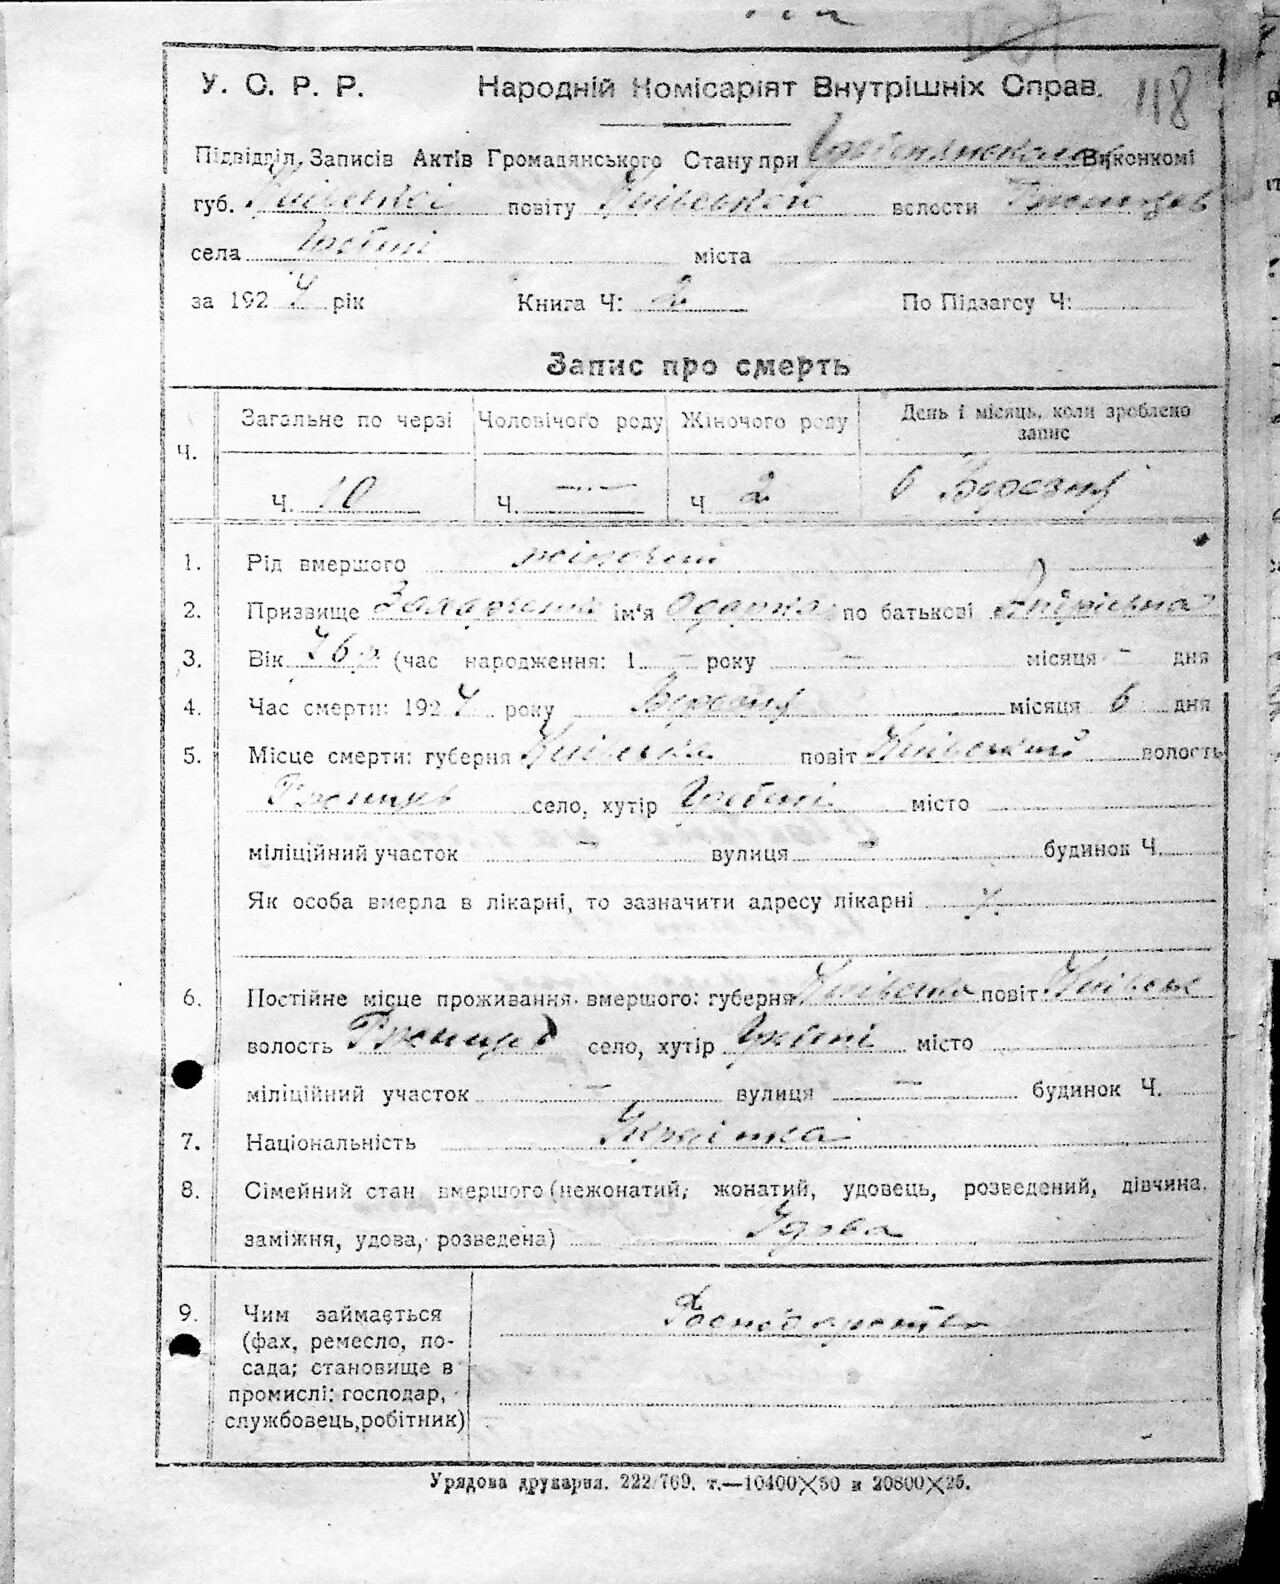 118
У. С. Р. Р. Народній Комісаріят Внутрішніх Справ.
Підвідділ Записів Актів Громадянського Стану при Виконкомі
губ. Київської повіту Київського волости Ржищев
села Гребені міста
за 1924 рік Книга Ч: 2 По Підзагсу Ч:
Запис про смерть
Ч. Загальне по черзі Чоловічого роду Жіночого роду День і місяць, коли зроблено запис
Ч. 10 Ч. — Ч 2 6 Березня
1. Рід вмершого жіночий
2. Призвище Захарченко ім'я Одарка по батькові
3. Вік 76 р (час народження: 1 — року — місяця - дня
4. Час смерти: 1924 року Березня місяця 6 дня
5. Місце смерти: губерня Київська повіт Київський волость
Ржищев село, хутір Гребені місто
міліційний участок — вулиця - будинок Ч.
Як особа вмерла в лікарні, то зазначити адресу лікарні
6. Постійне місце проживання вмершого: губерня Київська повіт Київськ
волость Ржищев село, хутір Гребені місто
міліційний участок — вулиця — будинок Ч.
7. Національність Українка
8. Сімейний стан вмершого (нежонатий, жонатий, удовець, розведений, дівчина,
заміжня, удова, розведена) Удова
9. Чим займається Господарство
(фах, ремесло, по-
сада; становище в
промислі: господар,
службовець, робітник)
Урядова друкарня. 222/769. т.—10400✕50 и 20800✕25.